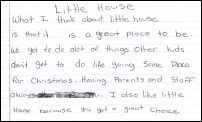 Little House
What I think about little house
is that I is a great place to be.
We get to do alot of things other kids
don't get to do like going some place
for Christmas. Having Parents and Staff
always. I also like little
House because you get a great chance